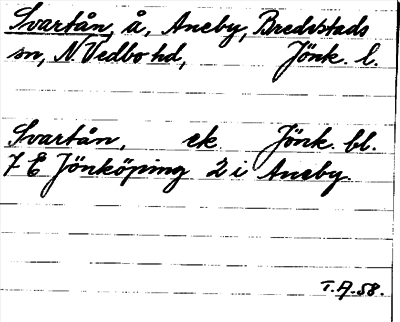 Svartån, å, Aneby, Bredestads
sn, N. Vedbo hd, Jönk. l.
Svartån, ek Jönk. bl.
7 E Jönköping 2 i Aneby.
T.A. 58.